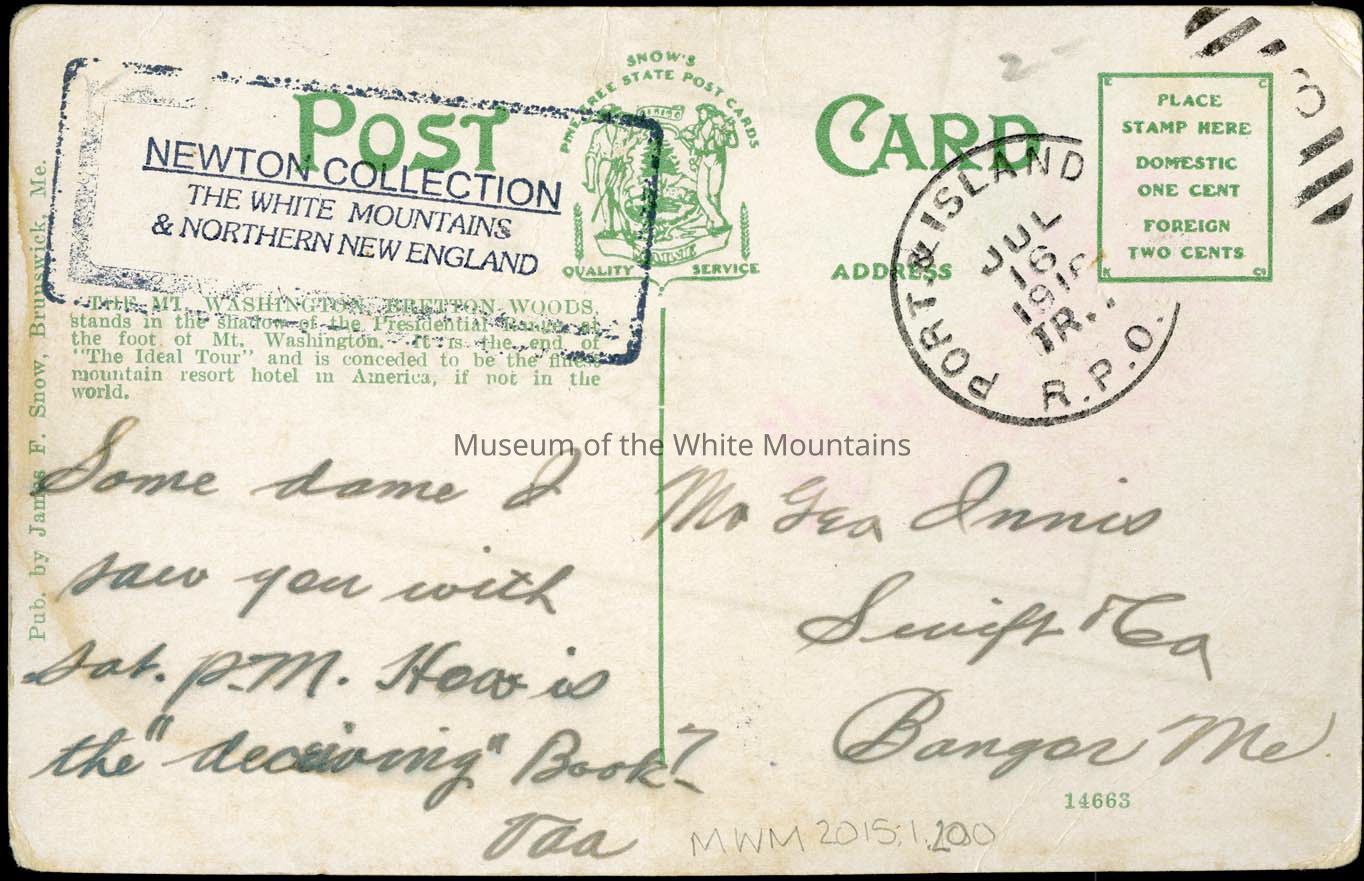 SNOW'S
PINE TREE STATE POST CARDS
POST CARD
QUALITY SERVICE
NEWTON COLLECTION
THE WHITE MOUNTAINS
& NORTHERN NEW ENGLAND
THE MT. WASHINGTON, BRETTON WOODS,
stands in the shadow of the Presidential Range at
the foot of Mt. Washington. It is the end of
"The Ideal Tour" and is conceded to be the finest
mountain resort hotel in America, if not in the
world.
Pub. by James F. Snow, Brunswick, Me.
ADDRESS
PLACE
STAMP HERE
DOMESTIC
ONE CENT
FOREIGN
TWO CENTS
PORT & ISLAND
JUL
16
191
TR..
R.P.O.
Museum of the White Mountains
Some dame I
saw you with
sat. P.M. How is
the "deceiving" Book?
Mr Geo Innis
Swift & Co
Bangor Me.
14663
MWM 2015.1.200